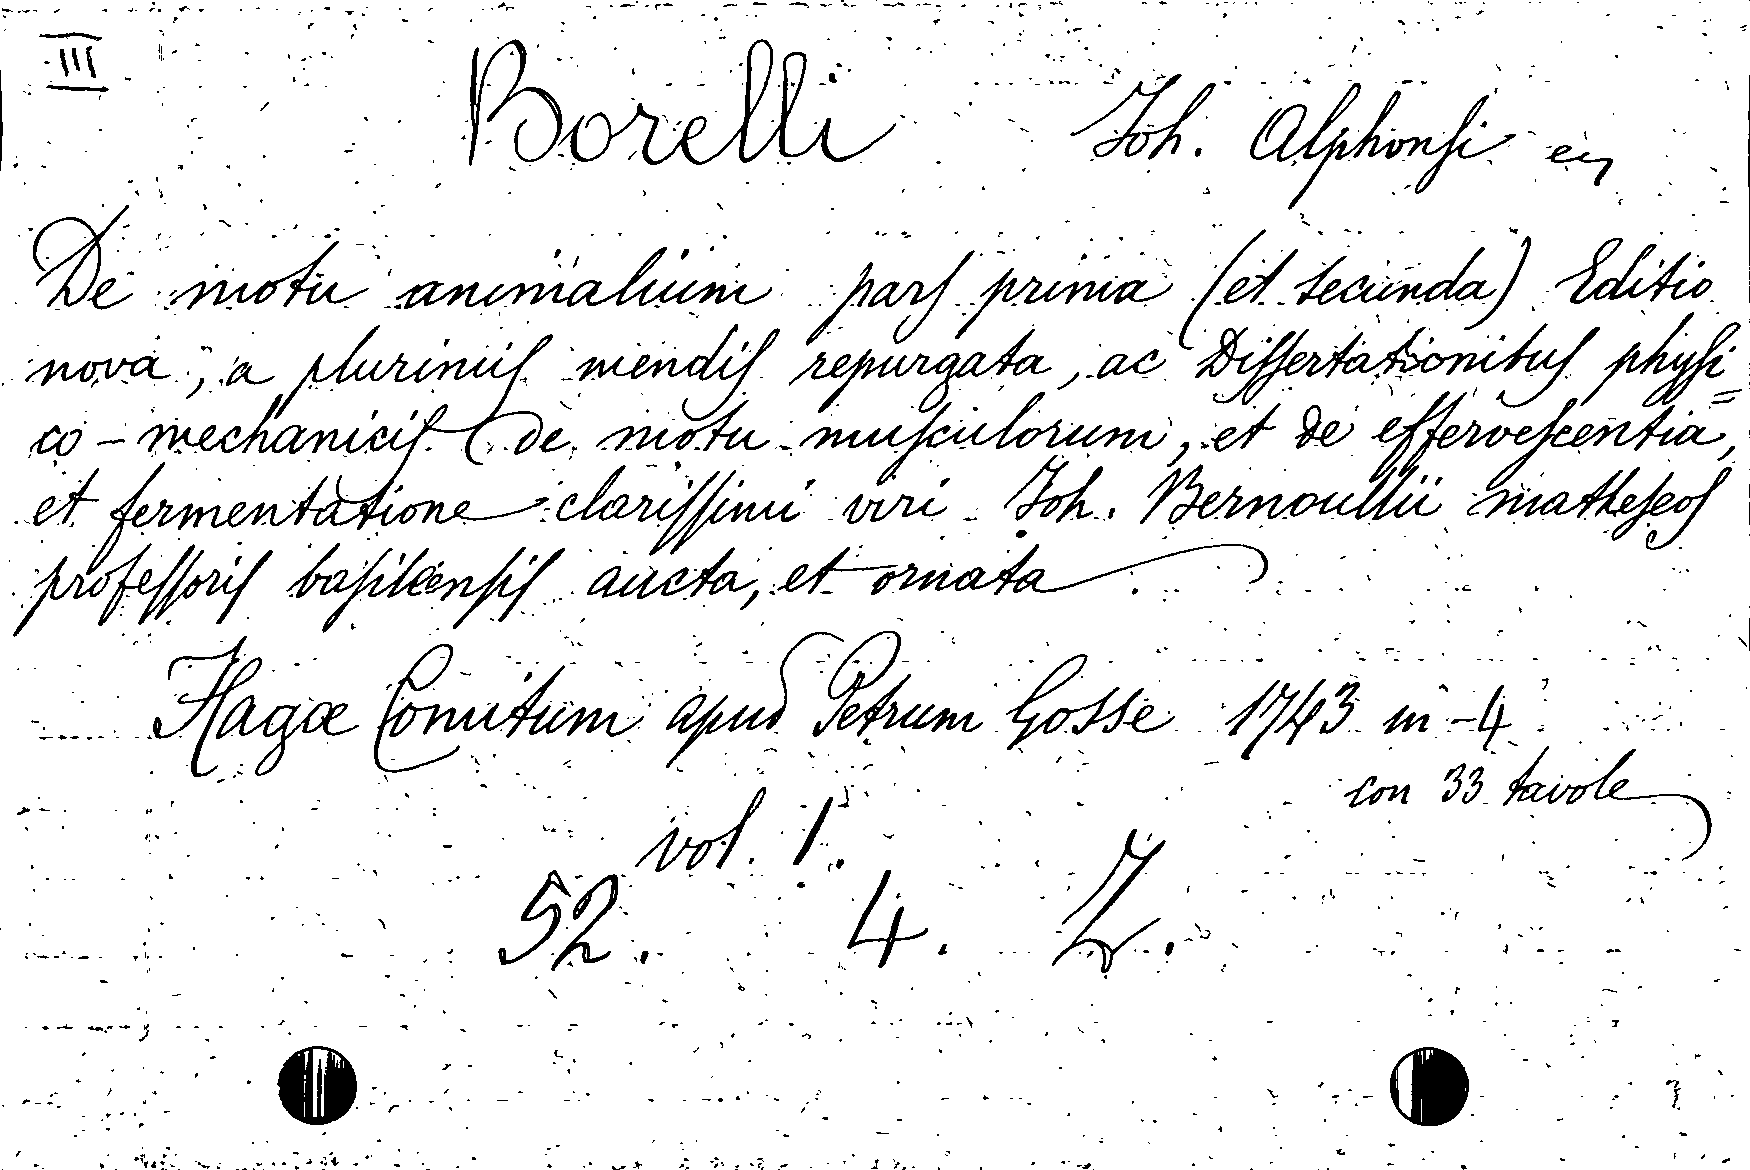 III
Borelli Joh. Alphonsi
De motu animalium pars prima (et secunda) Editio
nova, a plurimis mendis repurgata, ac Dissertationibus physi=
co-mechanicis de motu musculorum, et de effervescentia,
et fermentatione clarissimi viri Joh. Bernoullii matheseos
professoris basileensis aucta, et ornata
Hagæ Comitum apud Petrum Gosse 1743 in-4
con 33 tavole
vol. 1.
52. 4. Z.